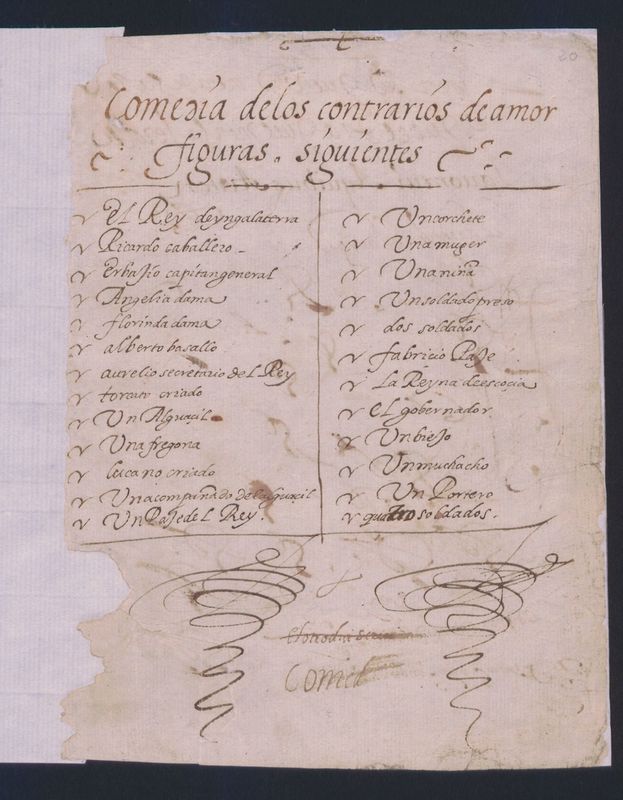 20
Comedia delos contrarios de amor
figuras . siguientes
El Rey deyngalaterra
Ricardo caballero
Erbasio capitangeneral
Angelia dama
florinda dama
alberto basallo
aurelio secretario del Rey
torcato criado
Un Alguaçil
Una fregona
lucano criado
Un acompañado delalguacil
Un Paje del Rey .
Un corchete
Una muger
Una niña
Un soldado preso
dos soldados
fabricio Paje
La Reyna deescoçia
el gobernador
Un biejo
Un muchacho
Un Portero
quatro soldados .